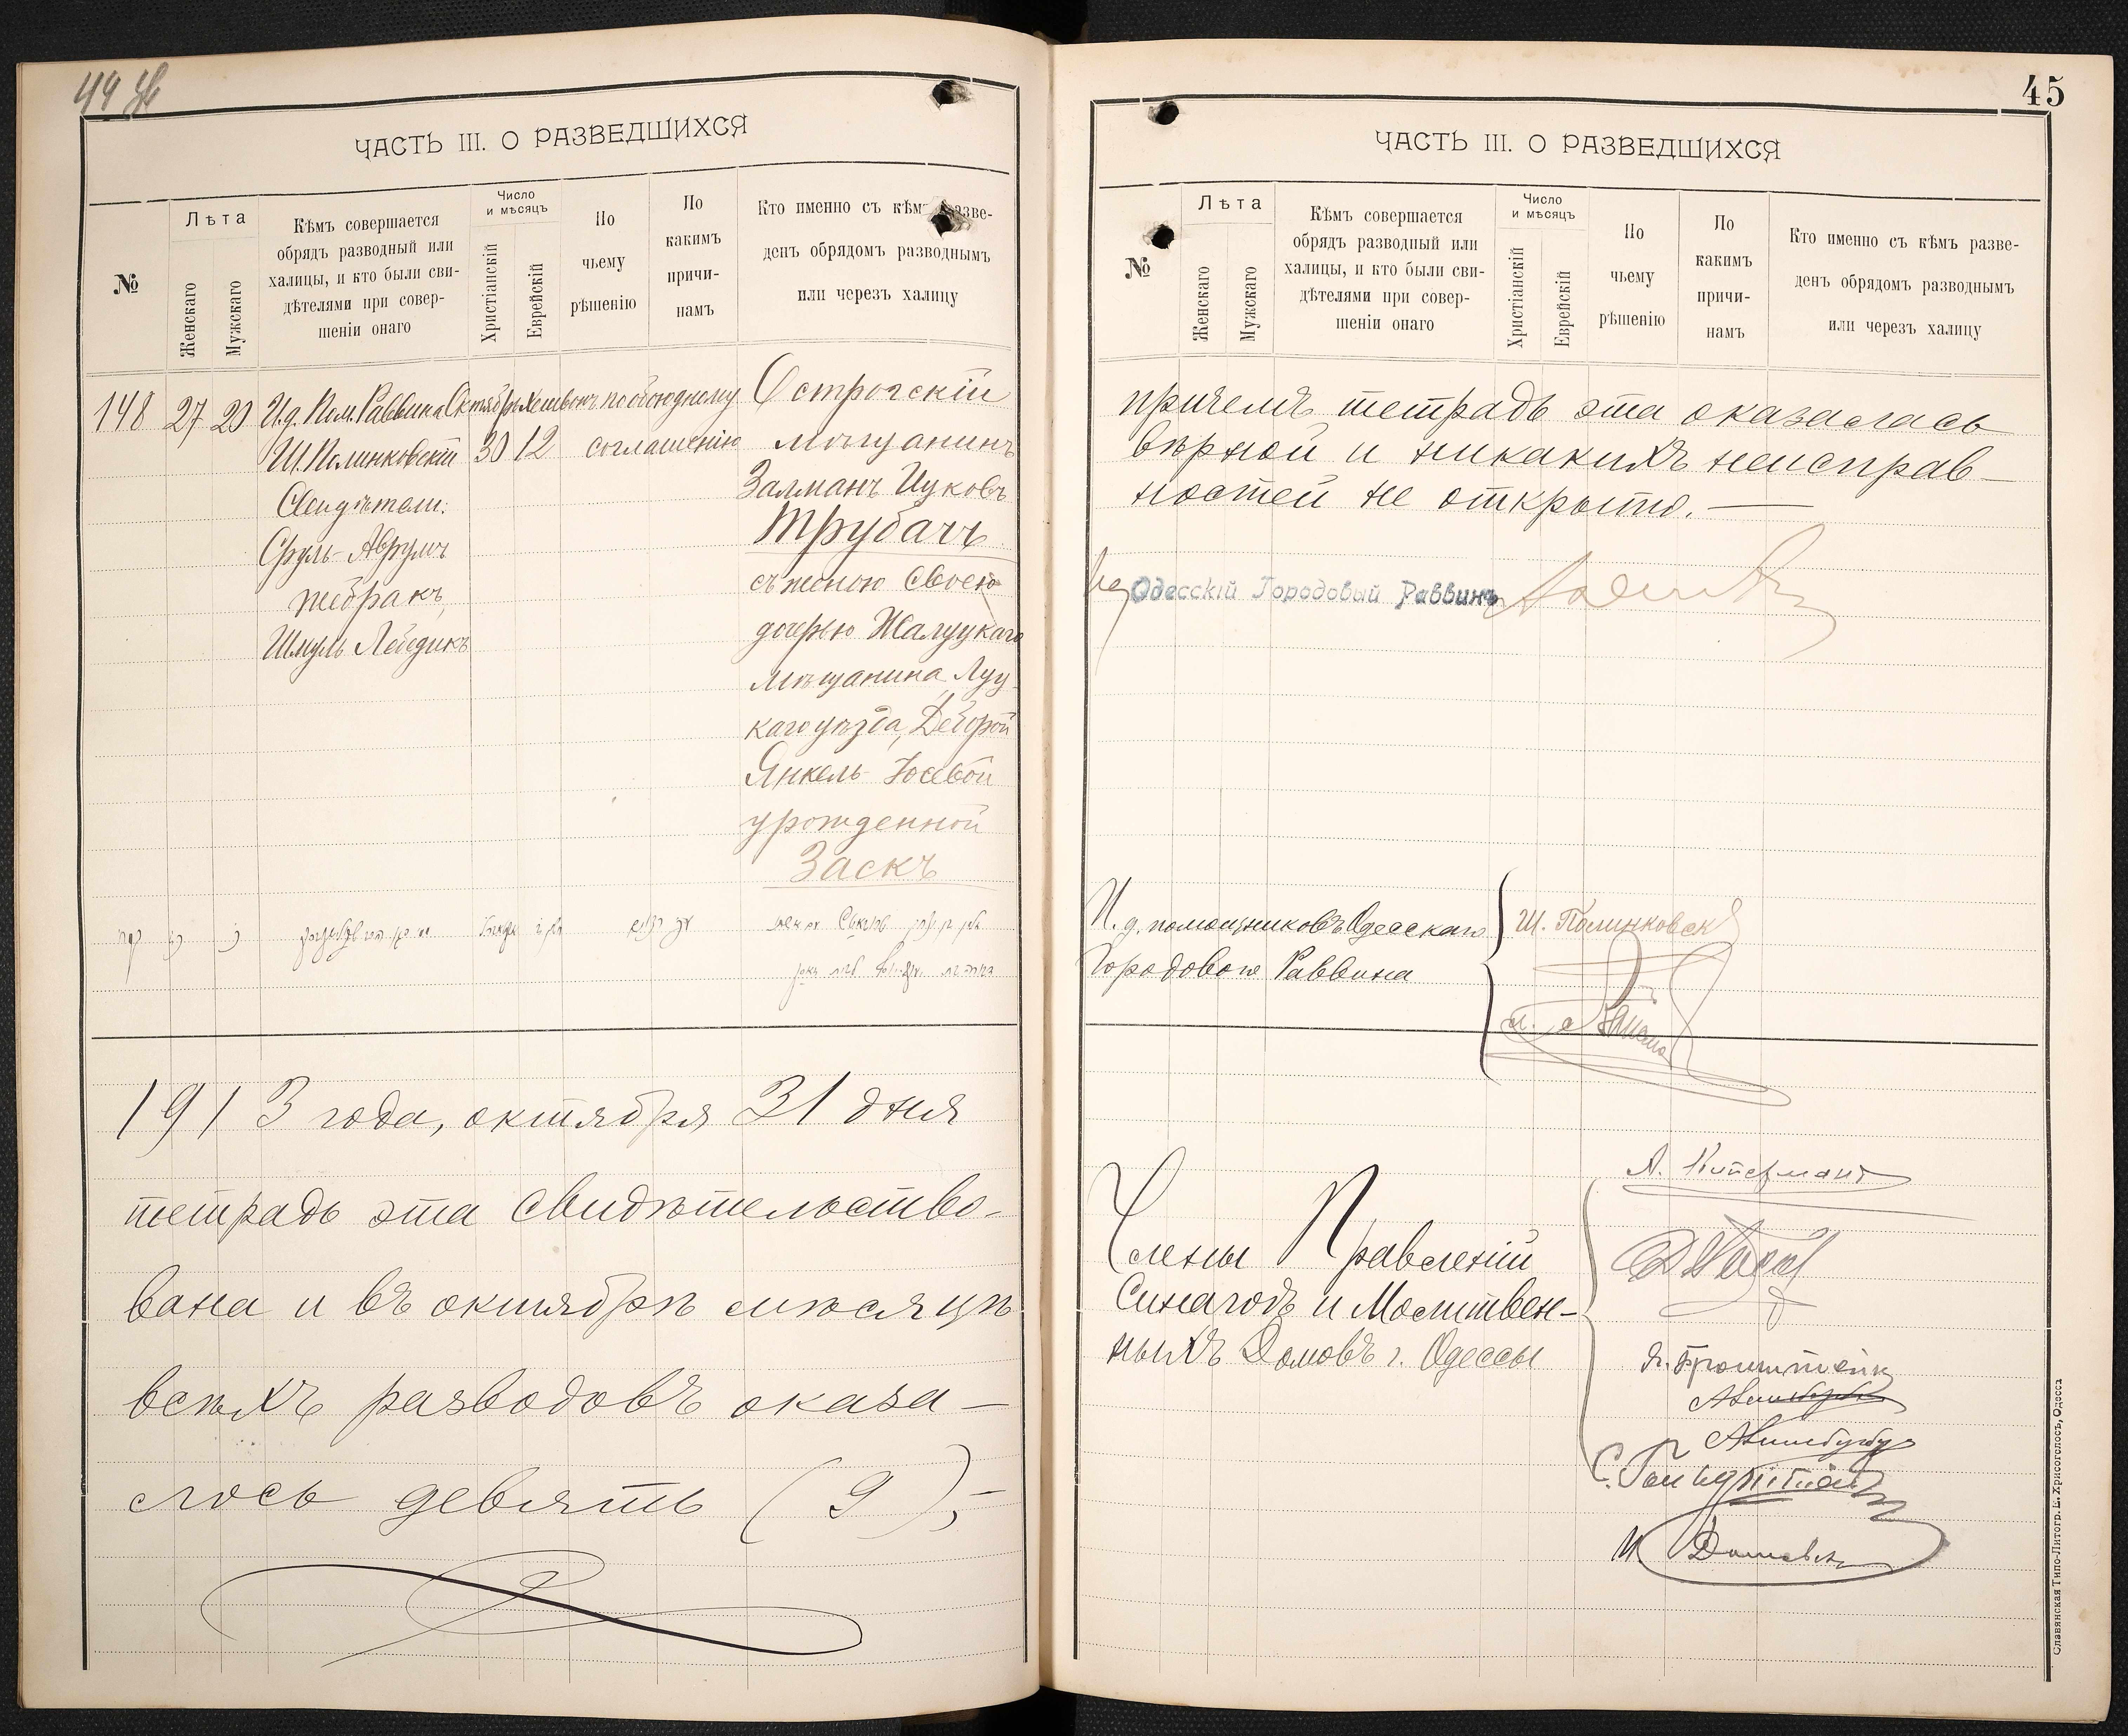 44 об
ЧАСТЬ III. О РАЗВЕДШИХСЯ
№
Лѣта
Женскаго
Мужскаго
Кѣмъ совершается
обрядъ разводный или
халицы, и кто были сви-
дѣтелями при совер-
шеніи онаго
Число
и мѣсяцъ
Христіанскій
Еврейскій
По
чьему
рѣшенію
По
какимъ
причи-
намъ
Кто именно съ кѣмъ разве-
денъ обрядомъ разводнымъ
или черезъ халицу
148 27 20 И.д. Пом. Раввина Октябрь Хешвонъ по обоюдному Острогскій
Ш. Полинковскій 30 12 соглашенію мѣщанинъ
Залманъ Ицковъ
Свидѣтели:
Трубачъ
Сруль-Аврумъ
съ женою своею
Жебракъ,
дочерью
Шмуль Лебедикъ
мѣщанина Луц-
каго уѣзда, Деборой
Янкель-Іосевой
урожденной
Заскъ
1913 года, октября 31 дня
тетрадь эта свидѣтельство-
вана и въ октябрѣ мѣсяцѣ
всѣхъ разводовъ оказа-
лось девять (9),-
45
ЧАСТЬ III. О РАЗВЕДШИХСЯ
№
Лѣта
Женскаго
Мужскаго
Кѣмъ совершается
обрядъ разводный или
халицы, и кто были сви-
дѣтелями при совер-
шеніи онаго
Число
и мѣсяцъ
Христіанскій
Еврейскій
По
чьему
рѣшенію
По
какимъ
причи-
намъ
Кто именно съ кѣмъ разве-
денъ обрядомъ разводнымъ
или черезъ халицу
причемъ тетрадь эта оказалась
вѣрной и никакихъ неисправ-
ностей не открыто.—
Ид Одесскій Городовый Раввинъ
И. д. помощниковъ Одесскаго Ш. Полинковск
Городового Раввина
Члены Правленій
Синагогъ и Молитвен-
ныхъ Домовъ г. Одессы
А. Киперманъ
Я. Бронштейн
Славянская Типо-Литогр. Е. Хрисогелосъ, Одесса